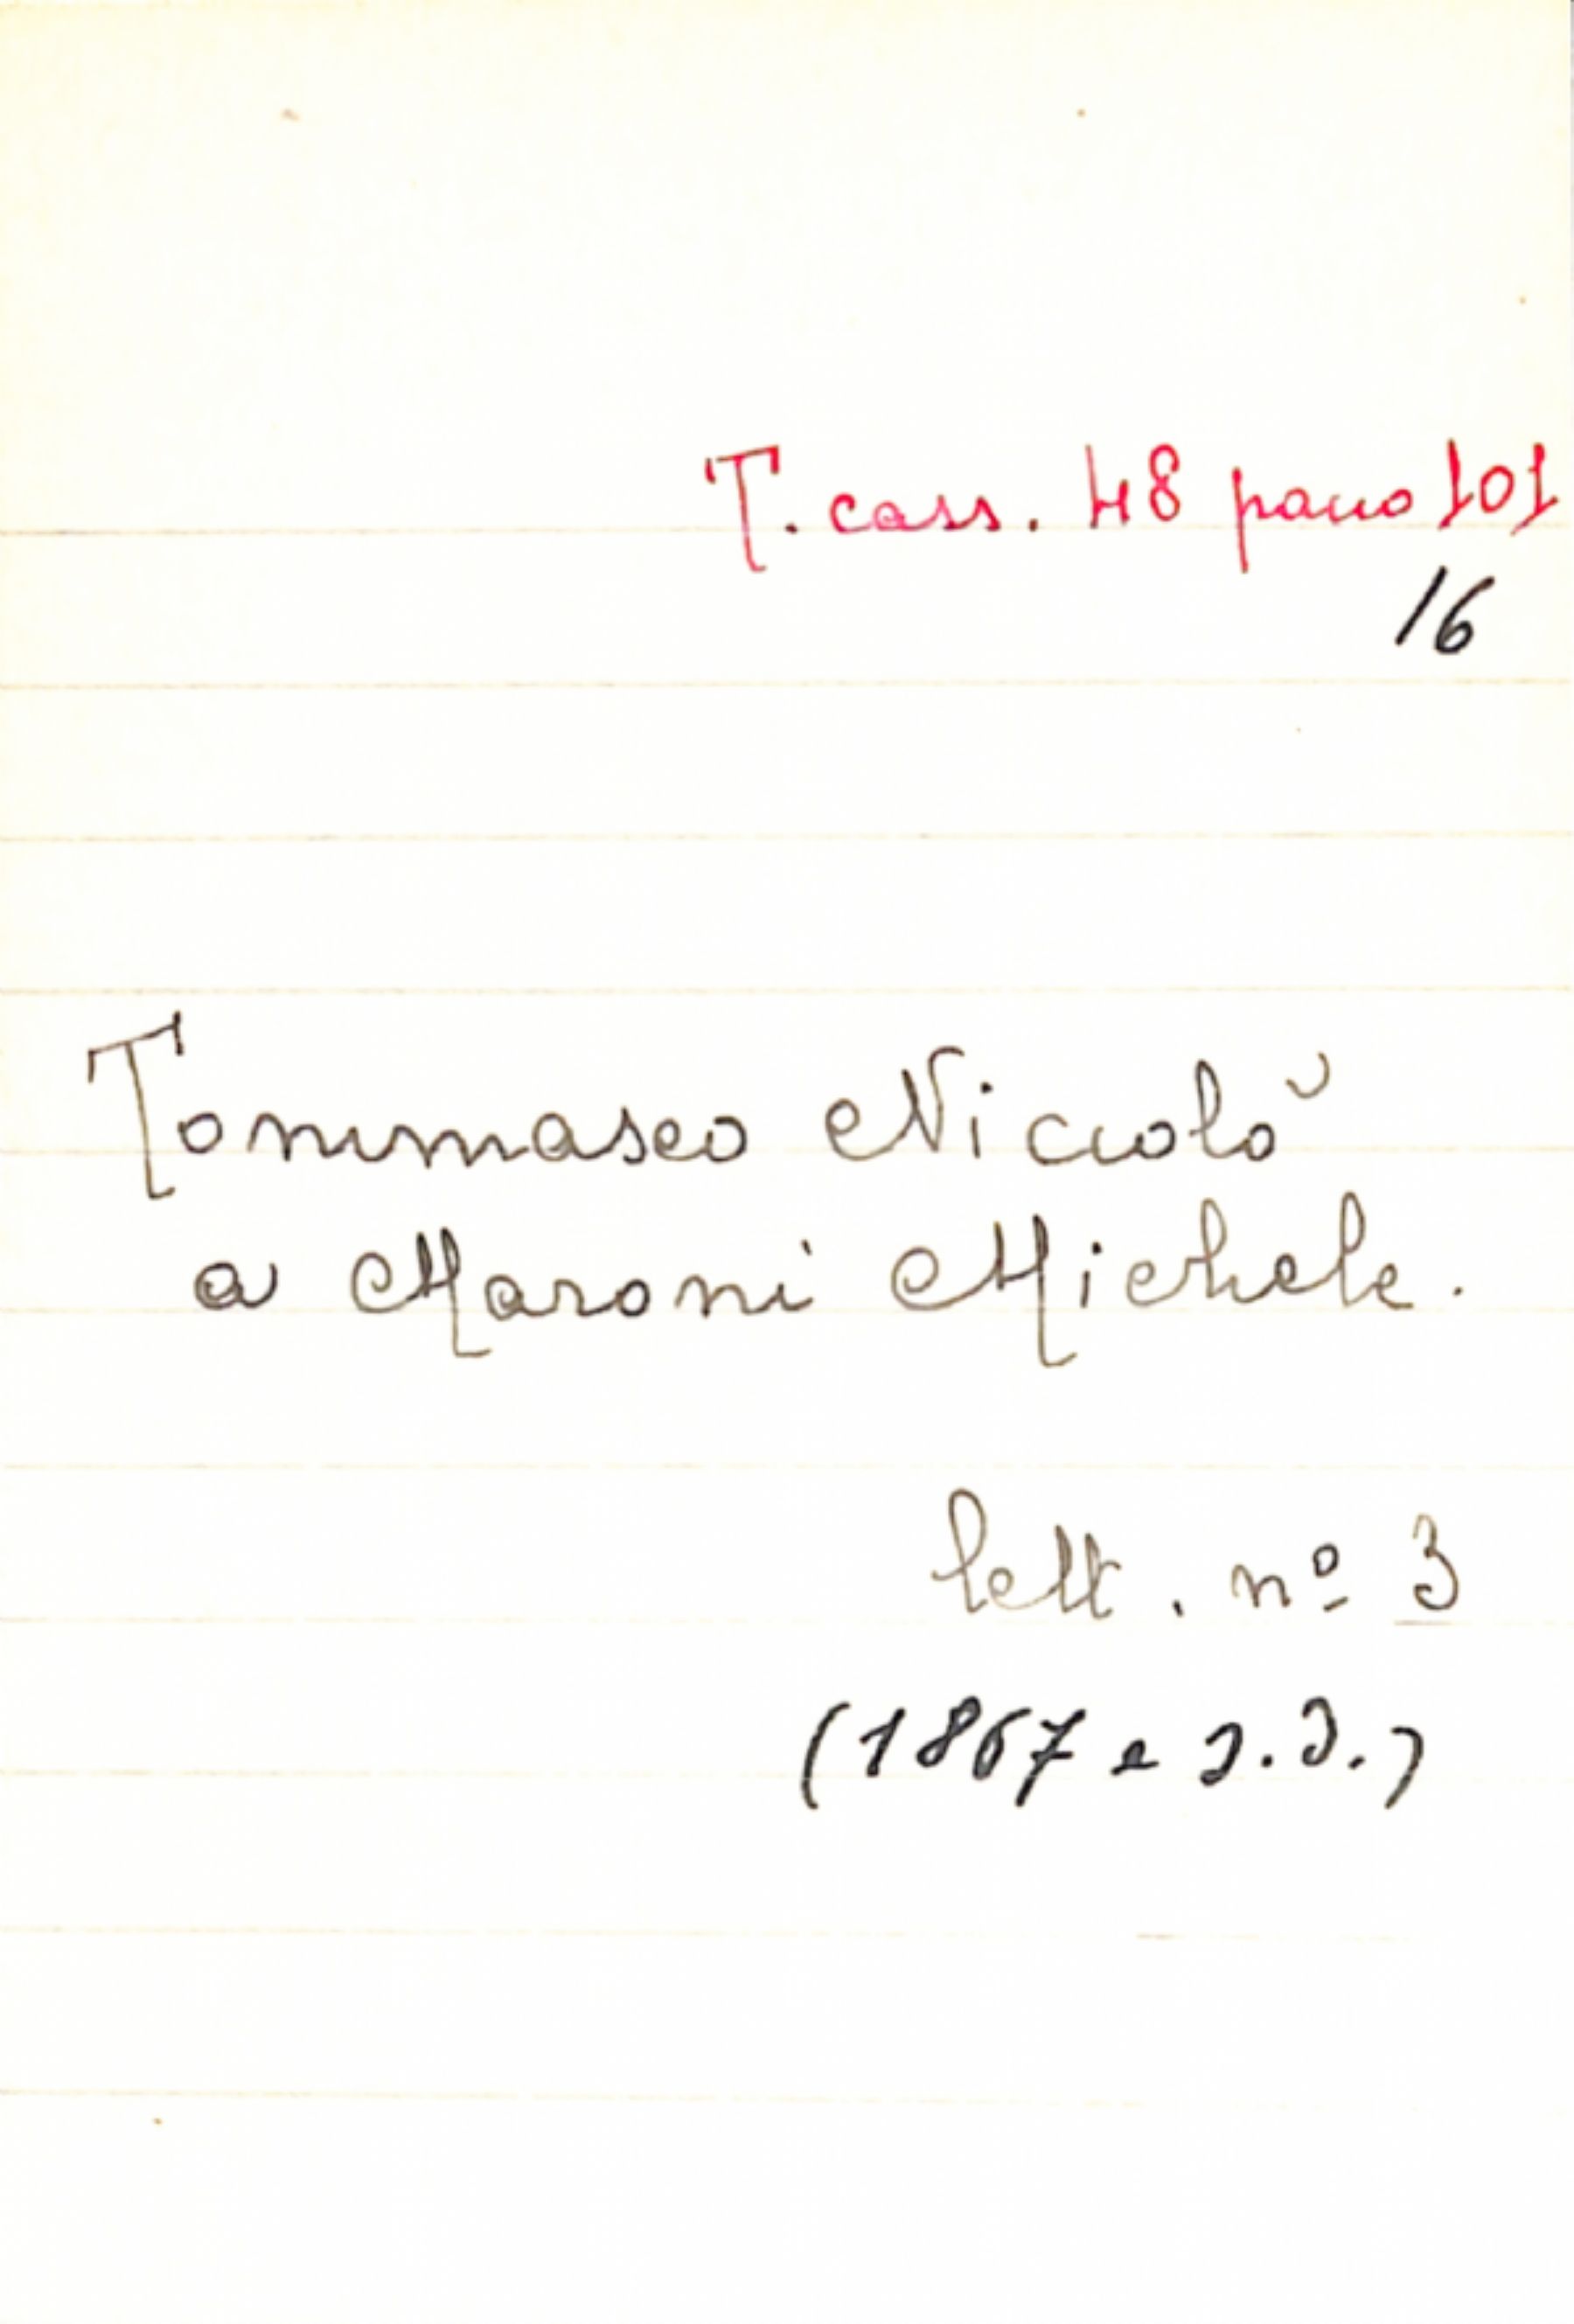 T. cass. 48 pacco 101
16
Tommaseo Niccolò
a Maroni Michele.
lett. nº 3
(1867 e s.d.)